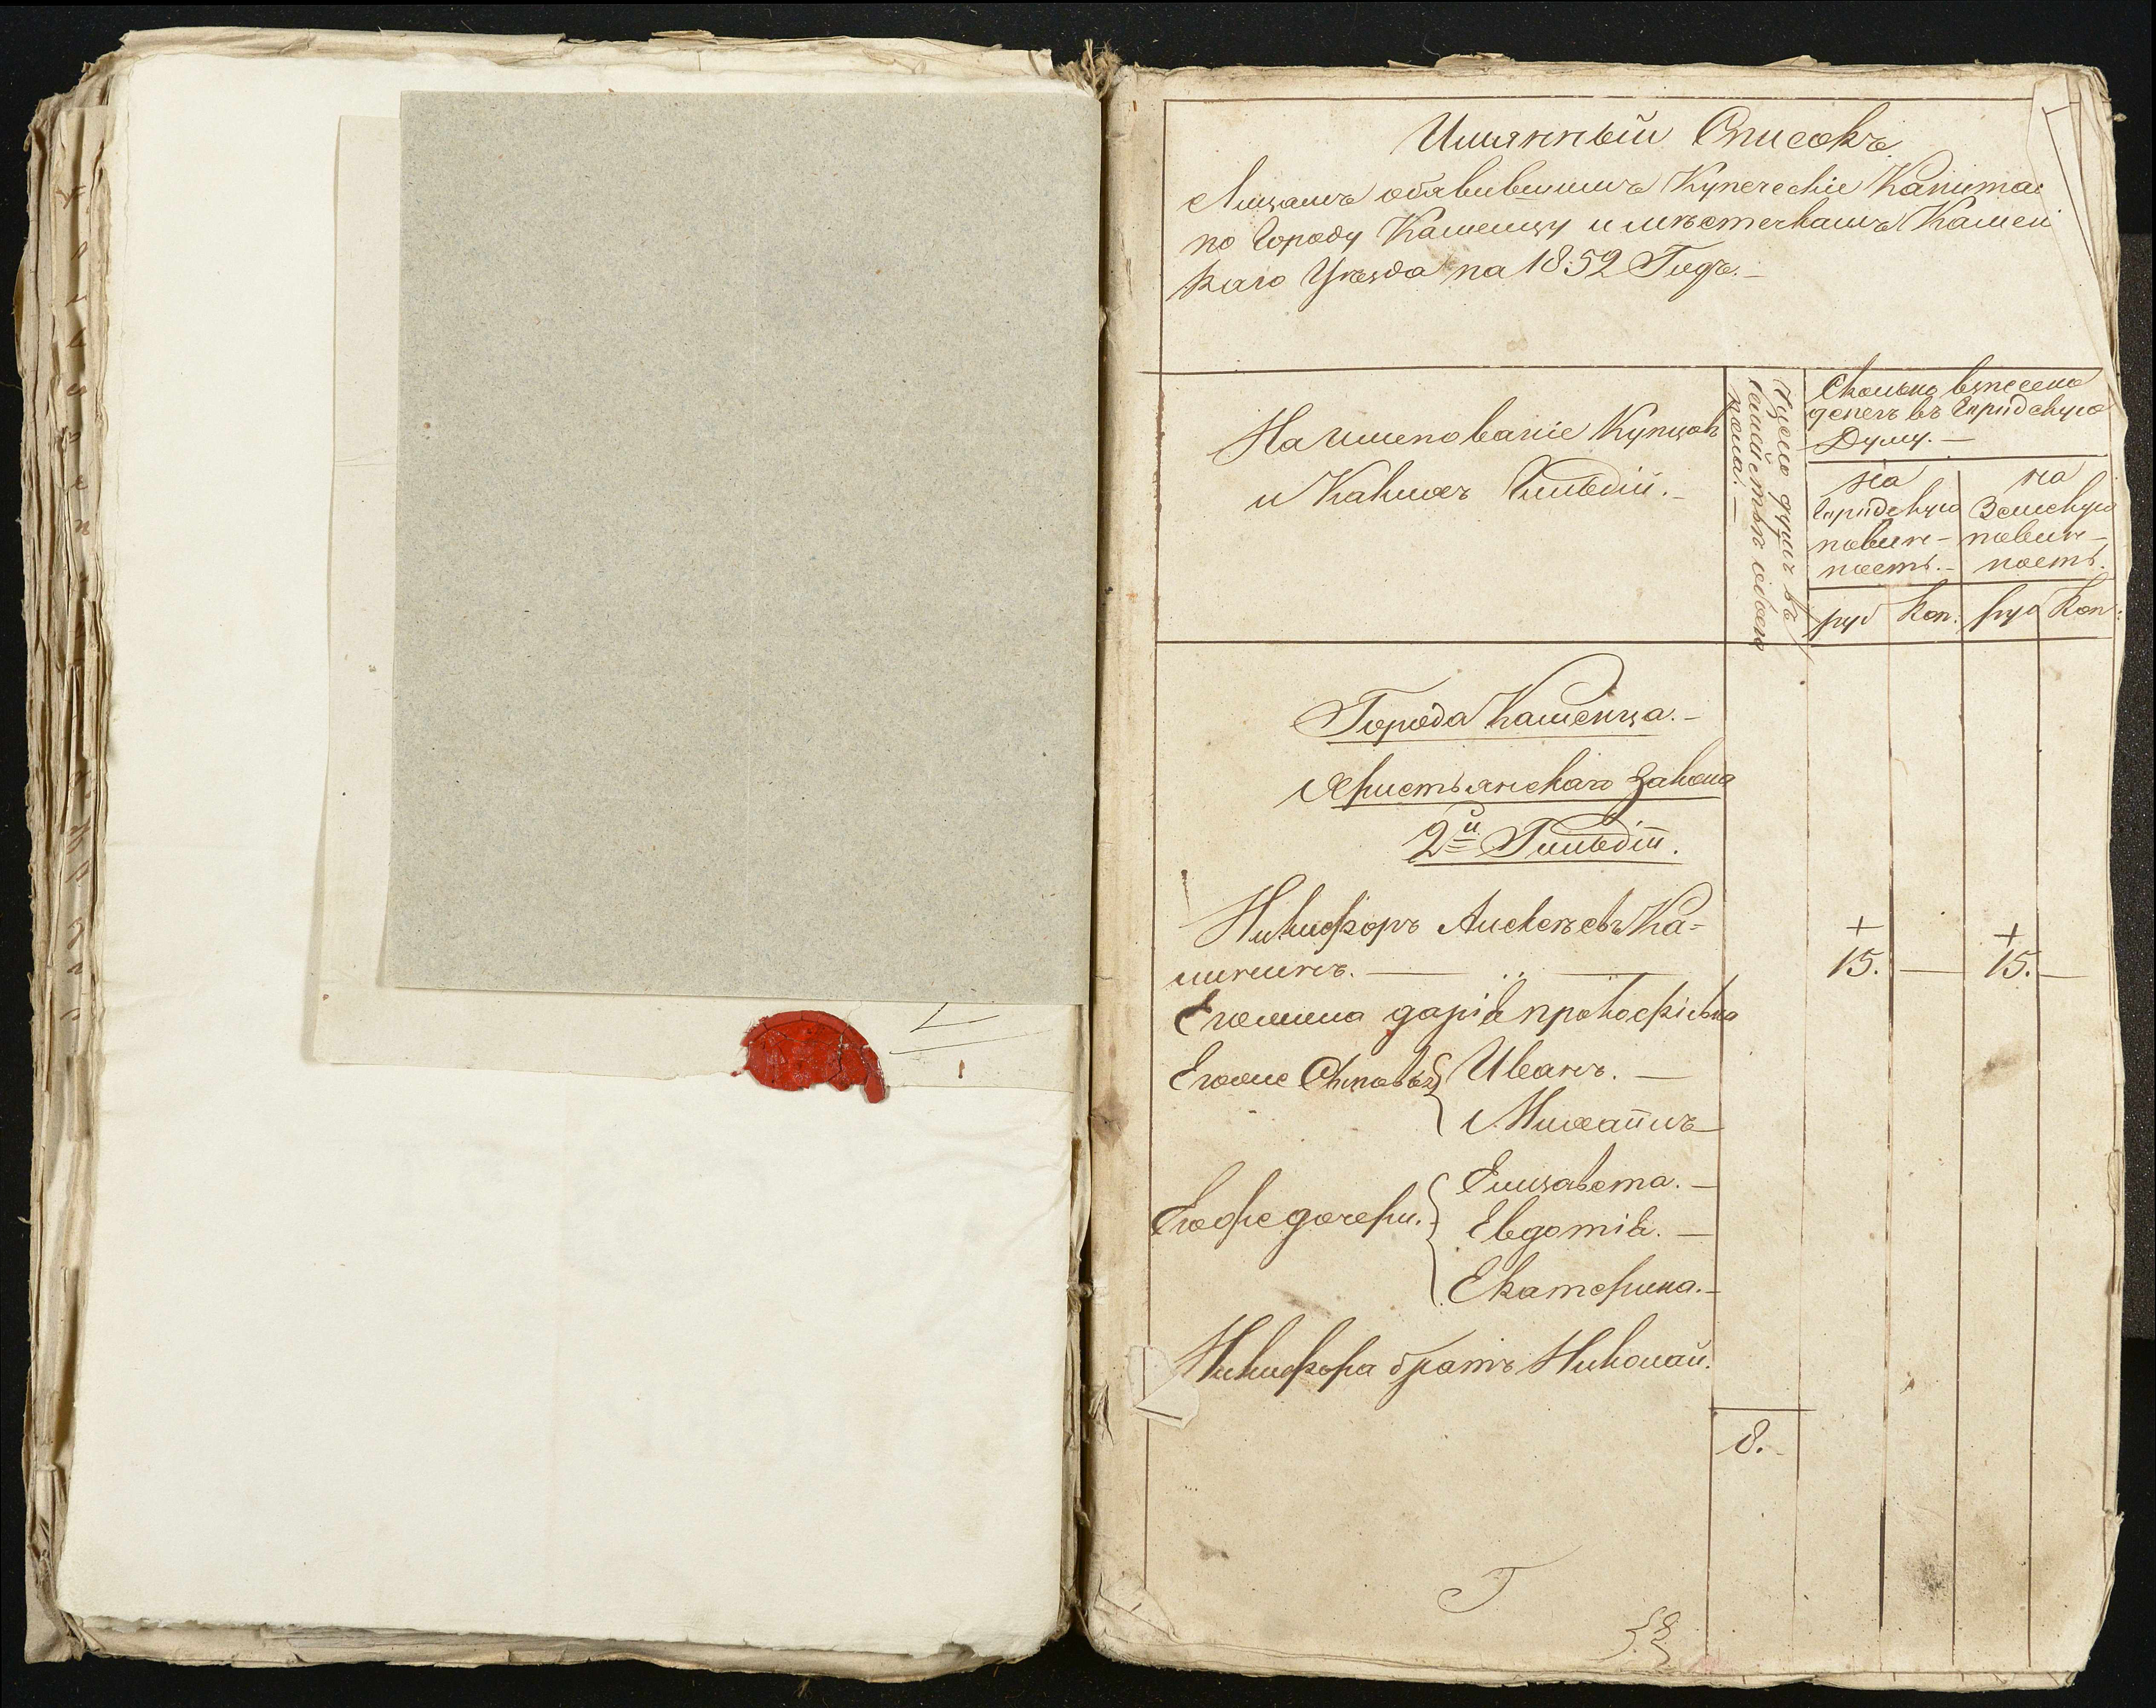 Имянный Списокъ
Лицамъ объявившимъ Купеческіе Капита
по Городу Каменцу и мѣстечкамъ Камен
каго Уѣзда на 1852 Годъ.
Наименованіе Купцовъ
и Какихъ Гильдій.
Число душъ въ
семействѣ обоего
пола.
Сколько взнесено
денегъ въ Городскую
Думу.
на
Городскую
повин-
ность.
на
Земскую
повин-
ность.
руб Коп. руб Коп:
Города Каменца.
Христьянскаго Закона
2й Гильдіи.
Никифоръ Алексѣевъ Ка-
15. 15.
Его жена дарія прокофіевна
Егоже Сыновья Иванъ.
Михаилъ
Егоже дочери. Елизавета.
Евдотія.
Екатерина.
Никифора братъ Николай.
8.